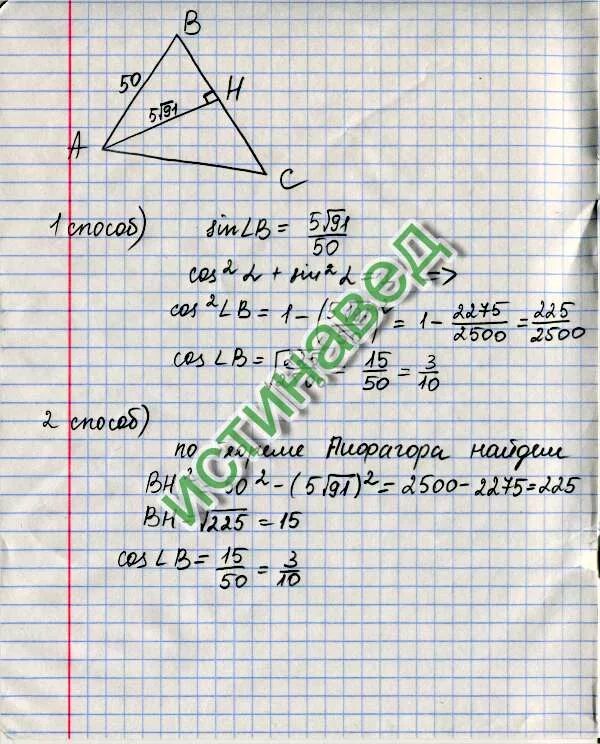 B
50
H
5√91
A
C
1 способ) sin∠B = 5√91/50
cos²α + sin²α =>
cos²∠B = 1 - = 1 - 2275/2500 = 225/2500
cos∠B = = 15/50 = 3/10
2 способ)
по Пифагора найдем
BH² - (5√91)² = 2500 - 2275 = 225
BH = √225 = 15
cos∠B = 15/50 = 3/10
ИСТИНАВЕД